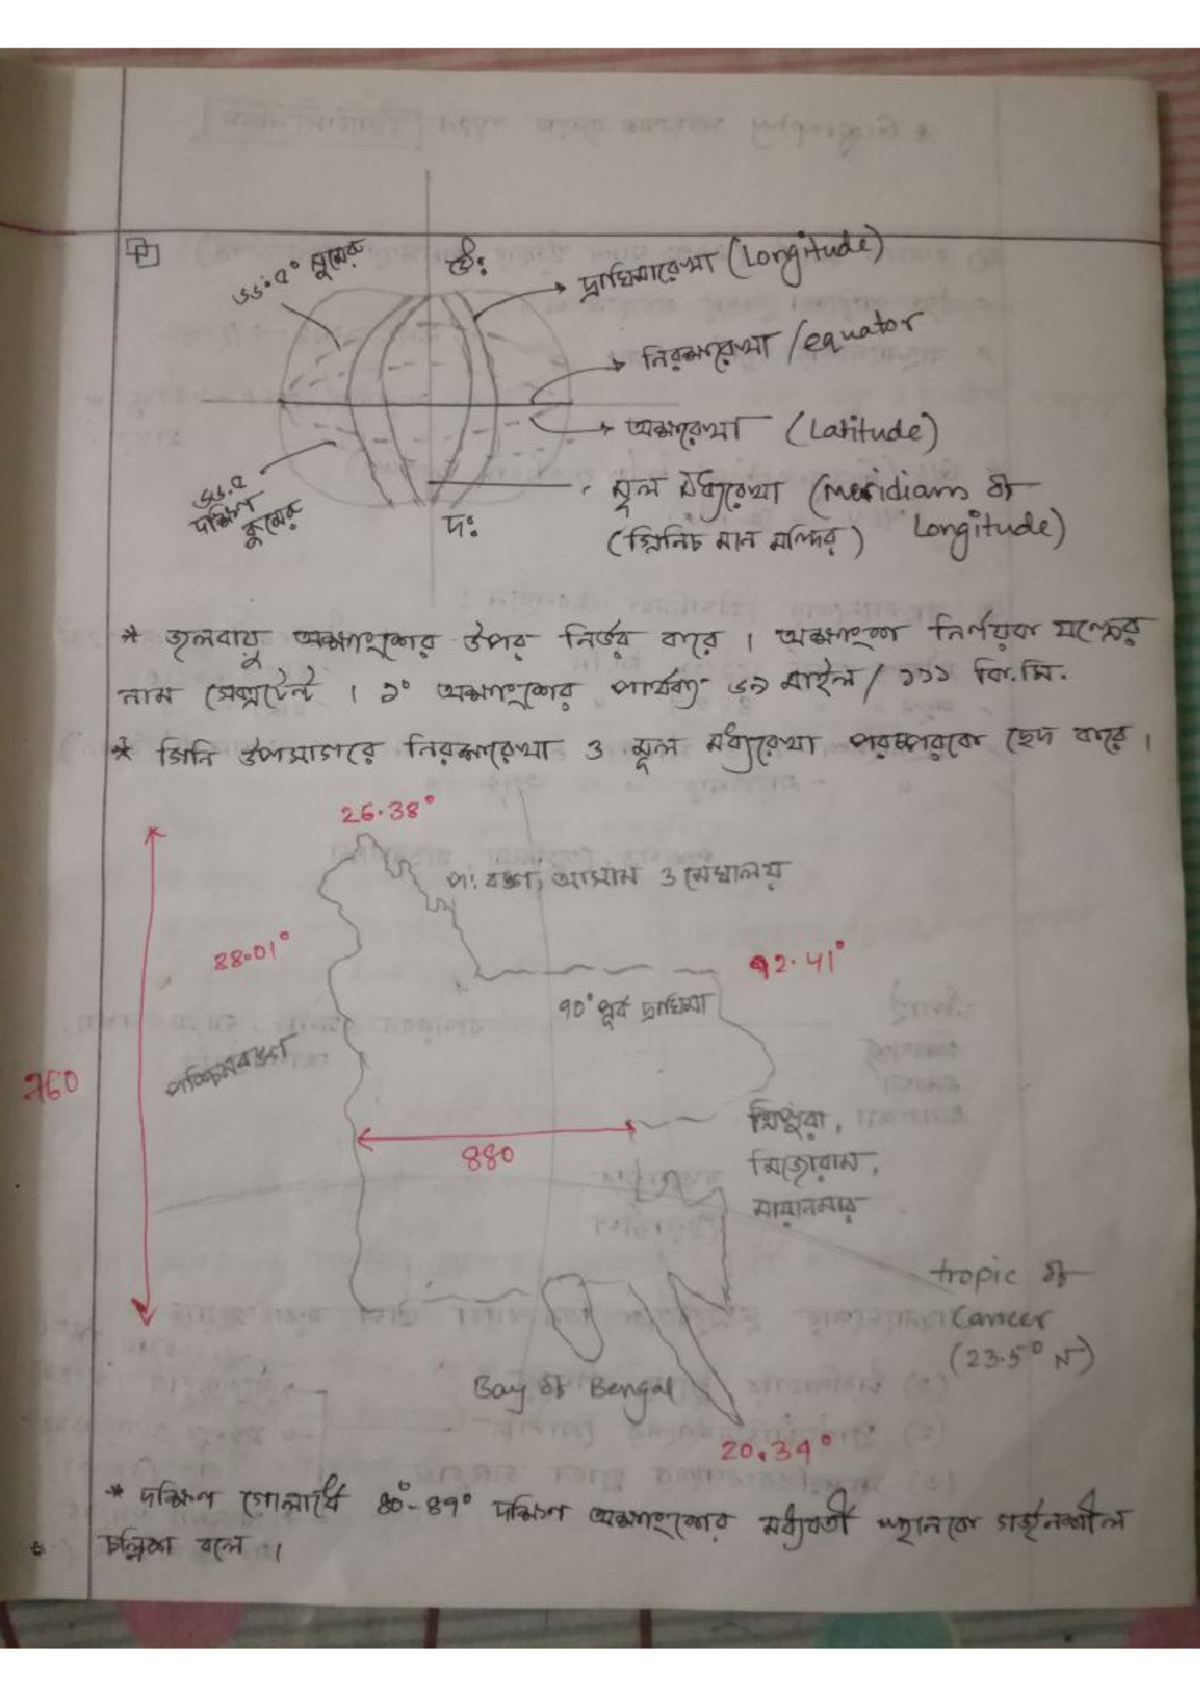 ৬৬.৫° সুমেরু
উঃ
দ্রাঘিমারেখা (Longitude)
নিরক্ষরেখা / equator
অক্ষরেখা (Latitude)
৬৬.৫
দক্ষিণ
কুমেরু
দঃ
মূল মধ্যরেখা (Meridiam of
Longitude)
(গ্রিনিচ মান মন্দির)
* জলবায়ু অক্ষাংশের উপর নির্ভর করে । অক্ষাংশ নির্ণয়ক যন্ত্রের
নাম সেক্সটেন্ট । ১° অক্ষাংশের পার্থক্য ৬৯ মাইল / ১১১ কি.মি.
* গিনি উপসাগরে নিরক্ষরেখা ও মূল মধ্যরেখা পরস্পরকে ছেদ করে ।
26.38°
প: বঙ্গ, আসাম ও মেঘালয়
88.01°
92.41°
90° পূর্ব দ্রাঘিমা
পশ্চিমবঙ্গ
760
880
ত্রিপুরা,
মিজোরাম,
মায়ানমার
tropic of
Cancer
(23.5° N)
Bay of Bengal
20.34°
* দক্ষিণ গোলার্ধে ৪০°-৪৭° দক্ষিণ অক্ষাংশের মধ্যবর্তী স্থানকে গর্জনশীল
চল্লিশ বলে ।